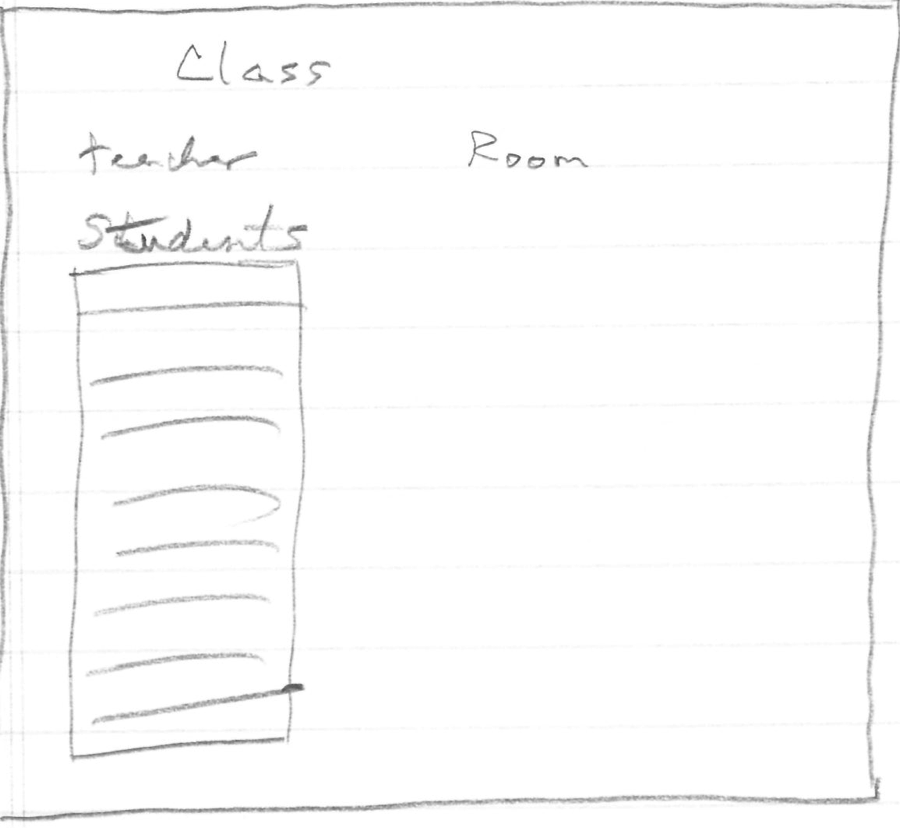 Class
teacher Room
Students